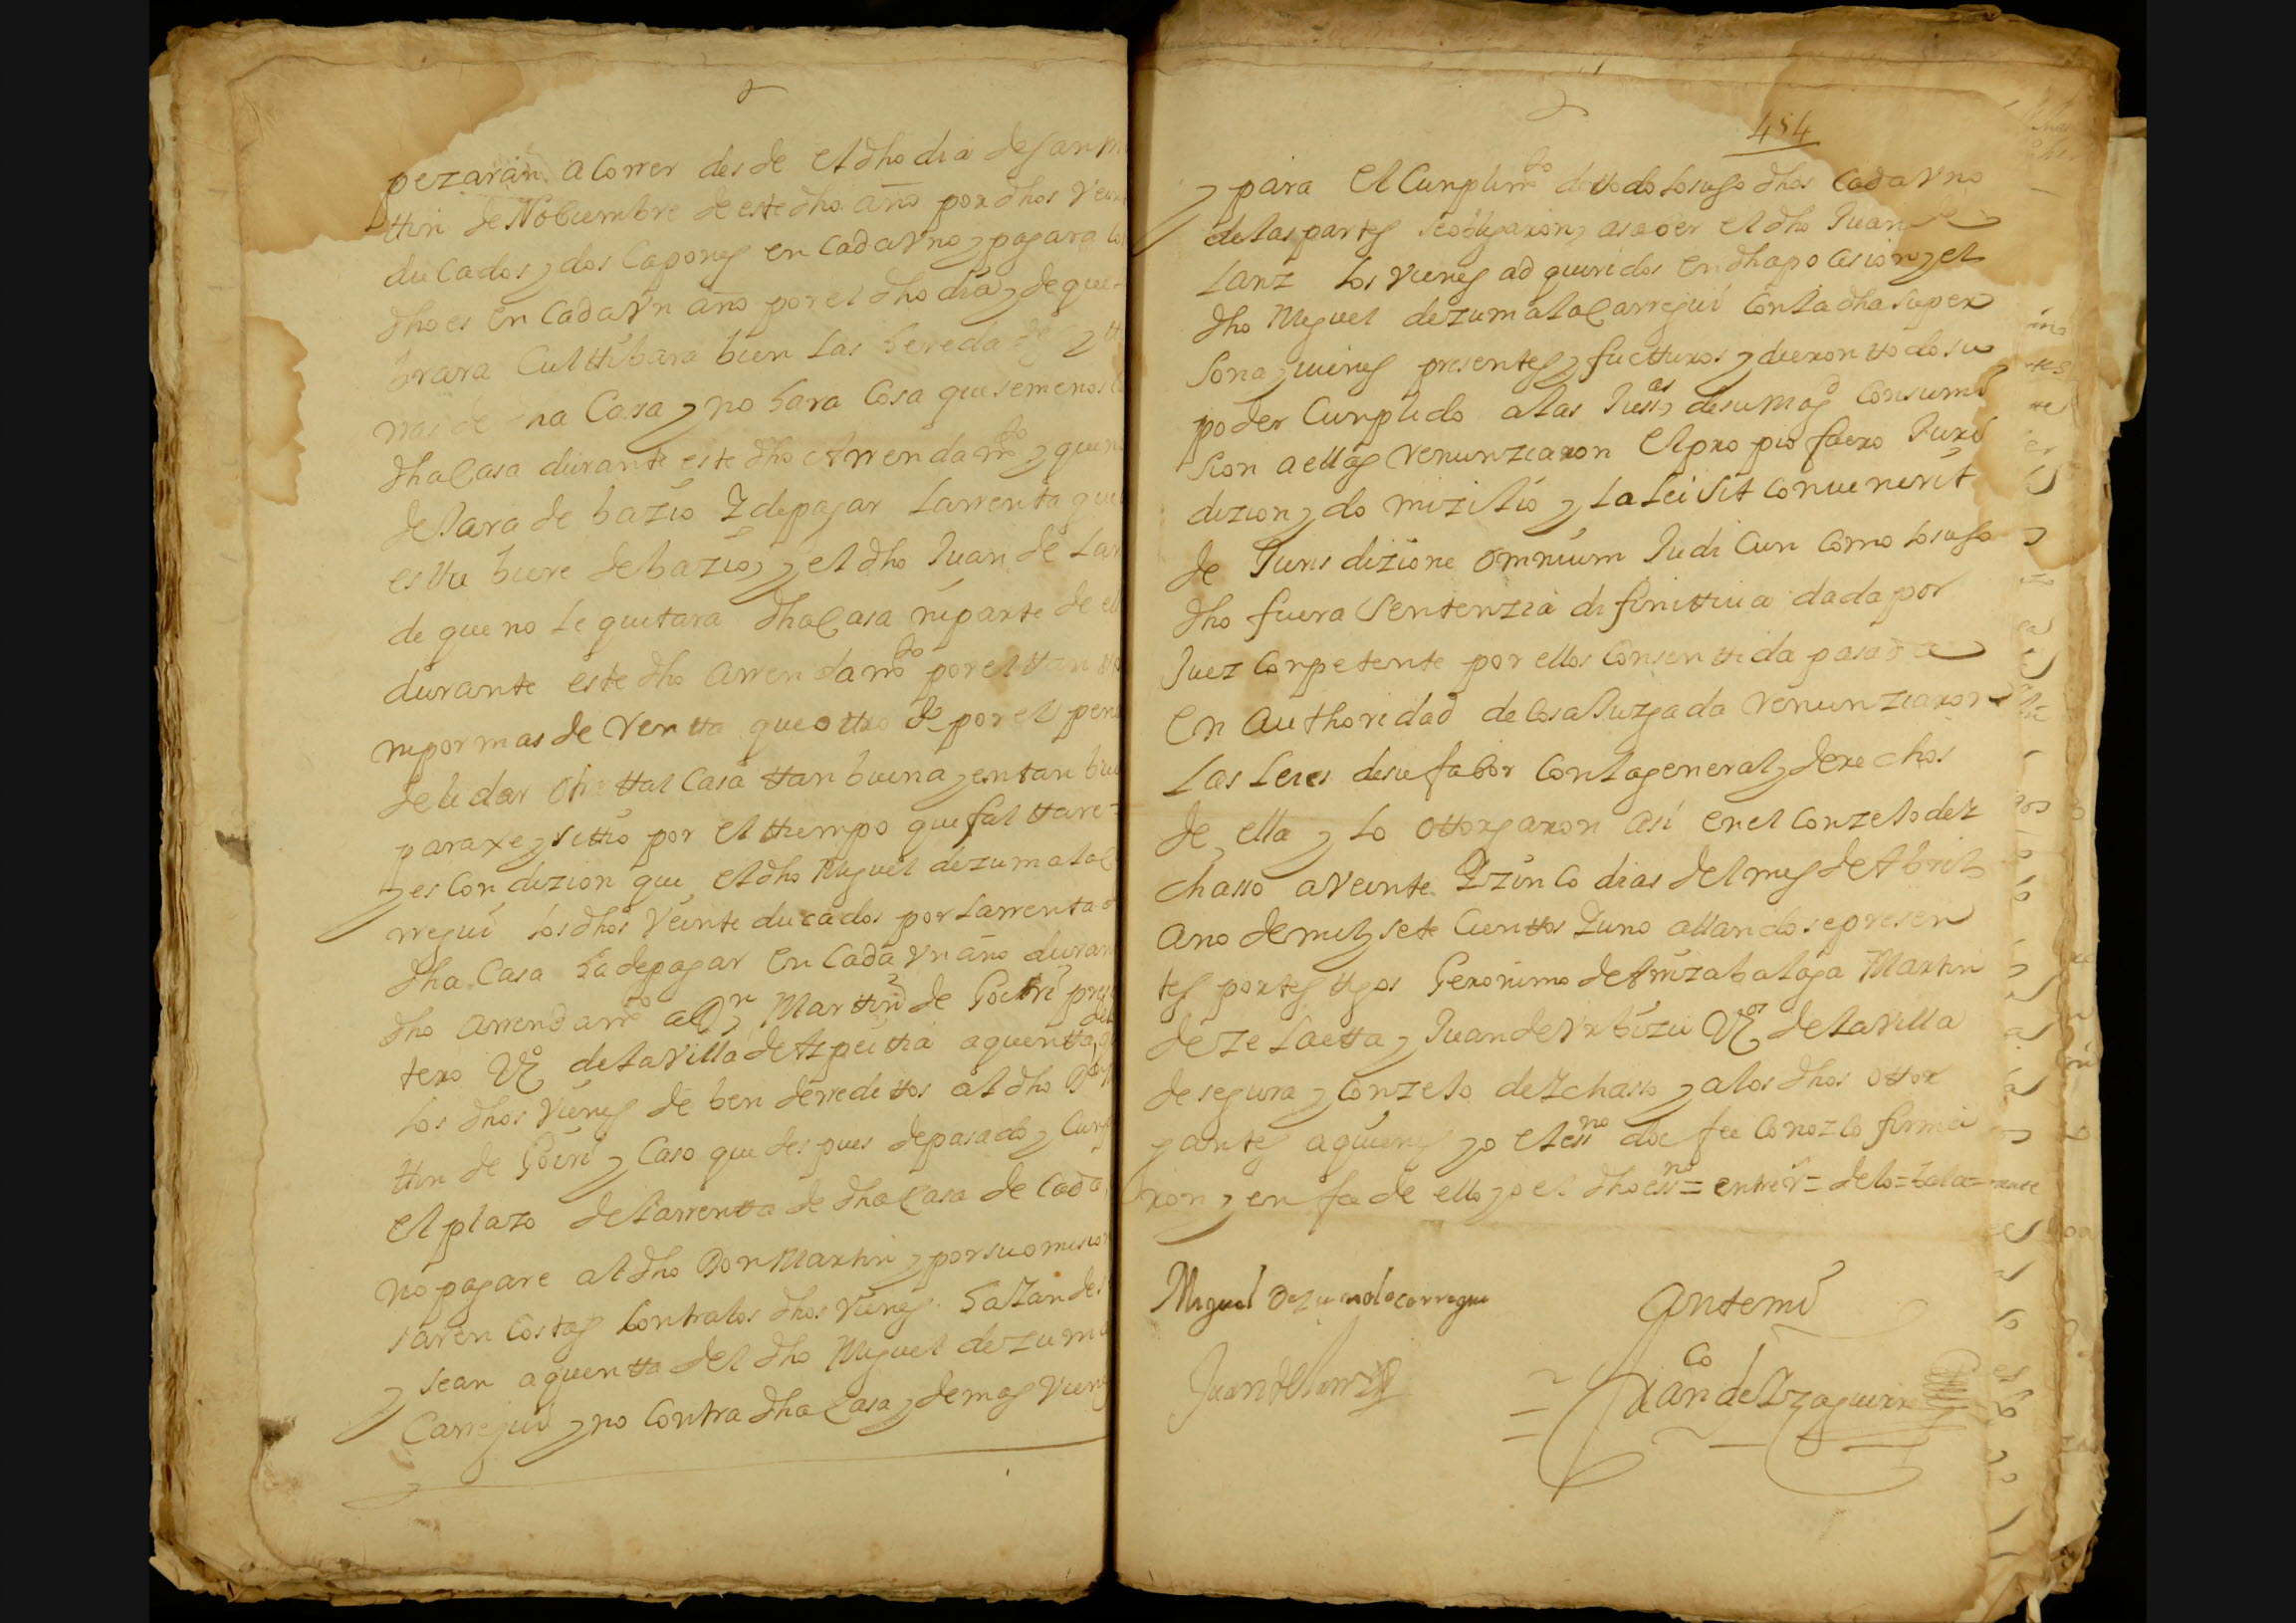 pezaran a correr desde el dho dia de san M
ttin de Nobiembre de este dho año por dhos vein
ducados y dos capones en cada vno y pagara lo
dho es en cada vn año por el dho dia y de que
brara culttibara bien las hereda des y tt
rras de na casa y no hara cosa que se menos
dha Casa durante este dho Arrendam.to y que no
dejara de bazio Y de pagar larrenta que
esttu biere de bazio y el dho Juan de Lan
de que no le quitara dha Casa ni parte de el
durante este dho arrendam.to por el ttan tto
ni por mas de rentta que ottro de por el pena
de le dar ottra ttal casa ttan buena y en tan bue
paraxe y sittio por el ttiempo que falttare
y es condizion que el dho Miguel de zumalac
rregui los dhos veinte ducados por larrenta d
dha Casa ha de pagar en cada vn año duran
dho arrendam.to a D.n Marttin de Goitri pres
tero V.o de la villa de Azpeittia a quentta
los dhos vienes de ben de rredittos al dho D.n
ttin de Goiri y caso que des pues de pasado y cunp
el plazo de larrentta de dha Casa de cada
no pagare al dho Don Martin y por su omision
saren costas contra los dhos vienes hazan de
y sean a quentta del dho Miguel de zuma
Carregui y no contra dha Casa y demas vienes
454
y para el cunplim.to de ttodo lo suso dhos cada vno
de las partes se obligaron, a saber el dho Juan de
Lanz los vienes adquiridos en dha po cesion y el
dho Miguel de zumalacarregui con la dha su per
sona y vienes presentes y fuctturos y dieron ttodo su
poder cunplido a las Juss.as de su mag.d con sumi
sion a ellas renunziaron el pro pio fuero Juri
dizion y do mizilio y la lei sit convenerit
de Juris dizione omnium Judi Cun como lo suso
dho fuera sentenzia di finittiua dada por
Juez conpetente por ellos consenttida pasada
en authoridad de cosa Juzgada renunziaron
las leies de su fabor con la general y derechos
de ella y lo ottorgaron asi en el conzejo de Y
chasso a veinte Y zinco dias del mes de Abril
ano de mil y sete cienttos Y uno allandose presen
tes por tes tigos Geronimo de Arrizabalaga Martin
de ze laetta y Juan de Vrbizu V.os de la Villa
de segura y conzejo de Ychasso y a los dhos ottor
gantes a quienes yo el ess.no doi fee conozco firma
ron y en fee de ello yo el dho ess.no = entre R = de lo = tala =
Miguel de zumalacarregui
Antemi
Juan de Lanz
Fran.co de Yzaguirre